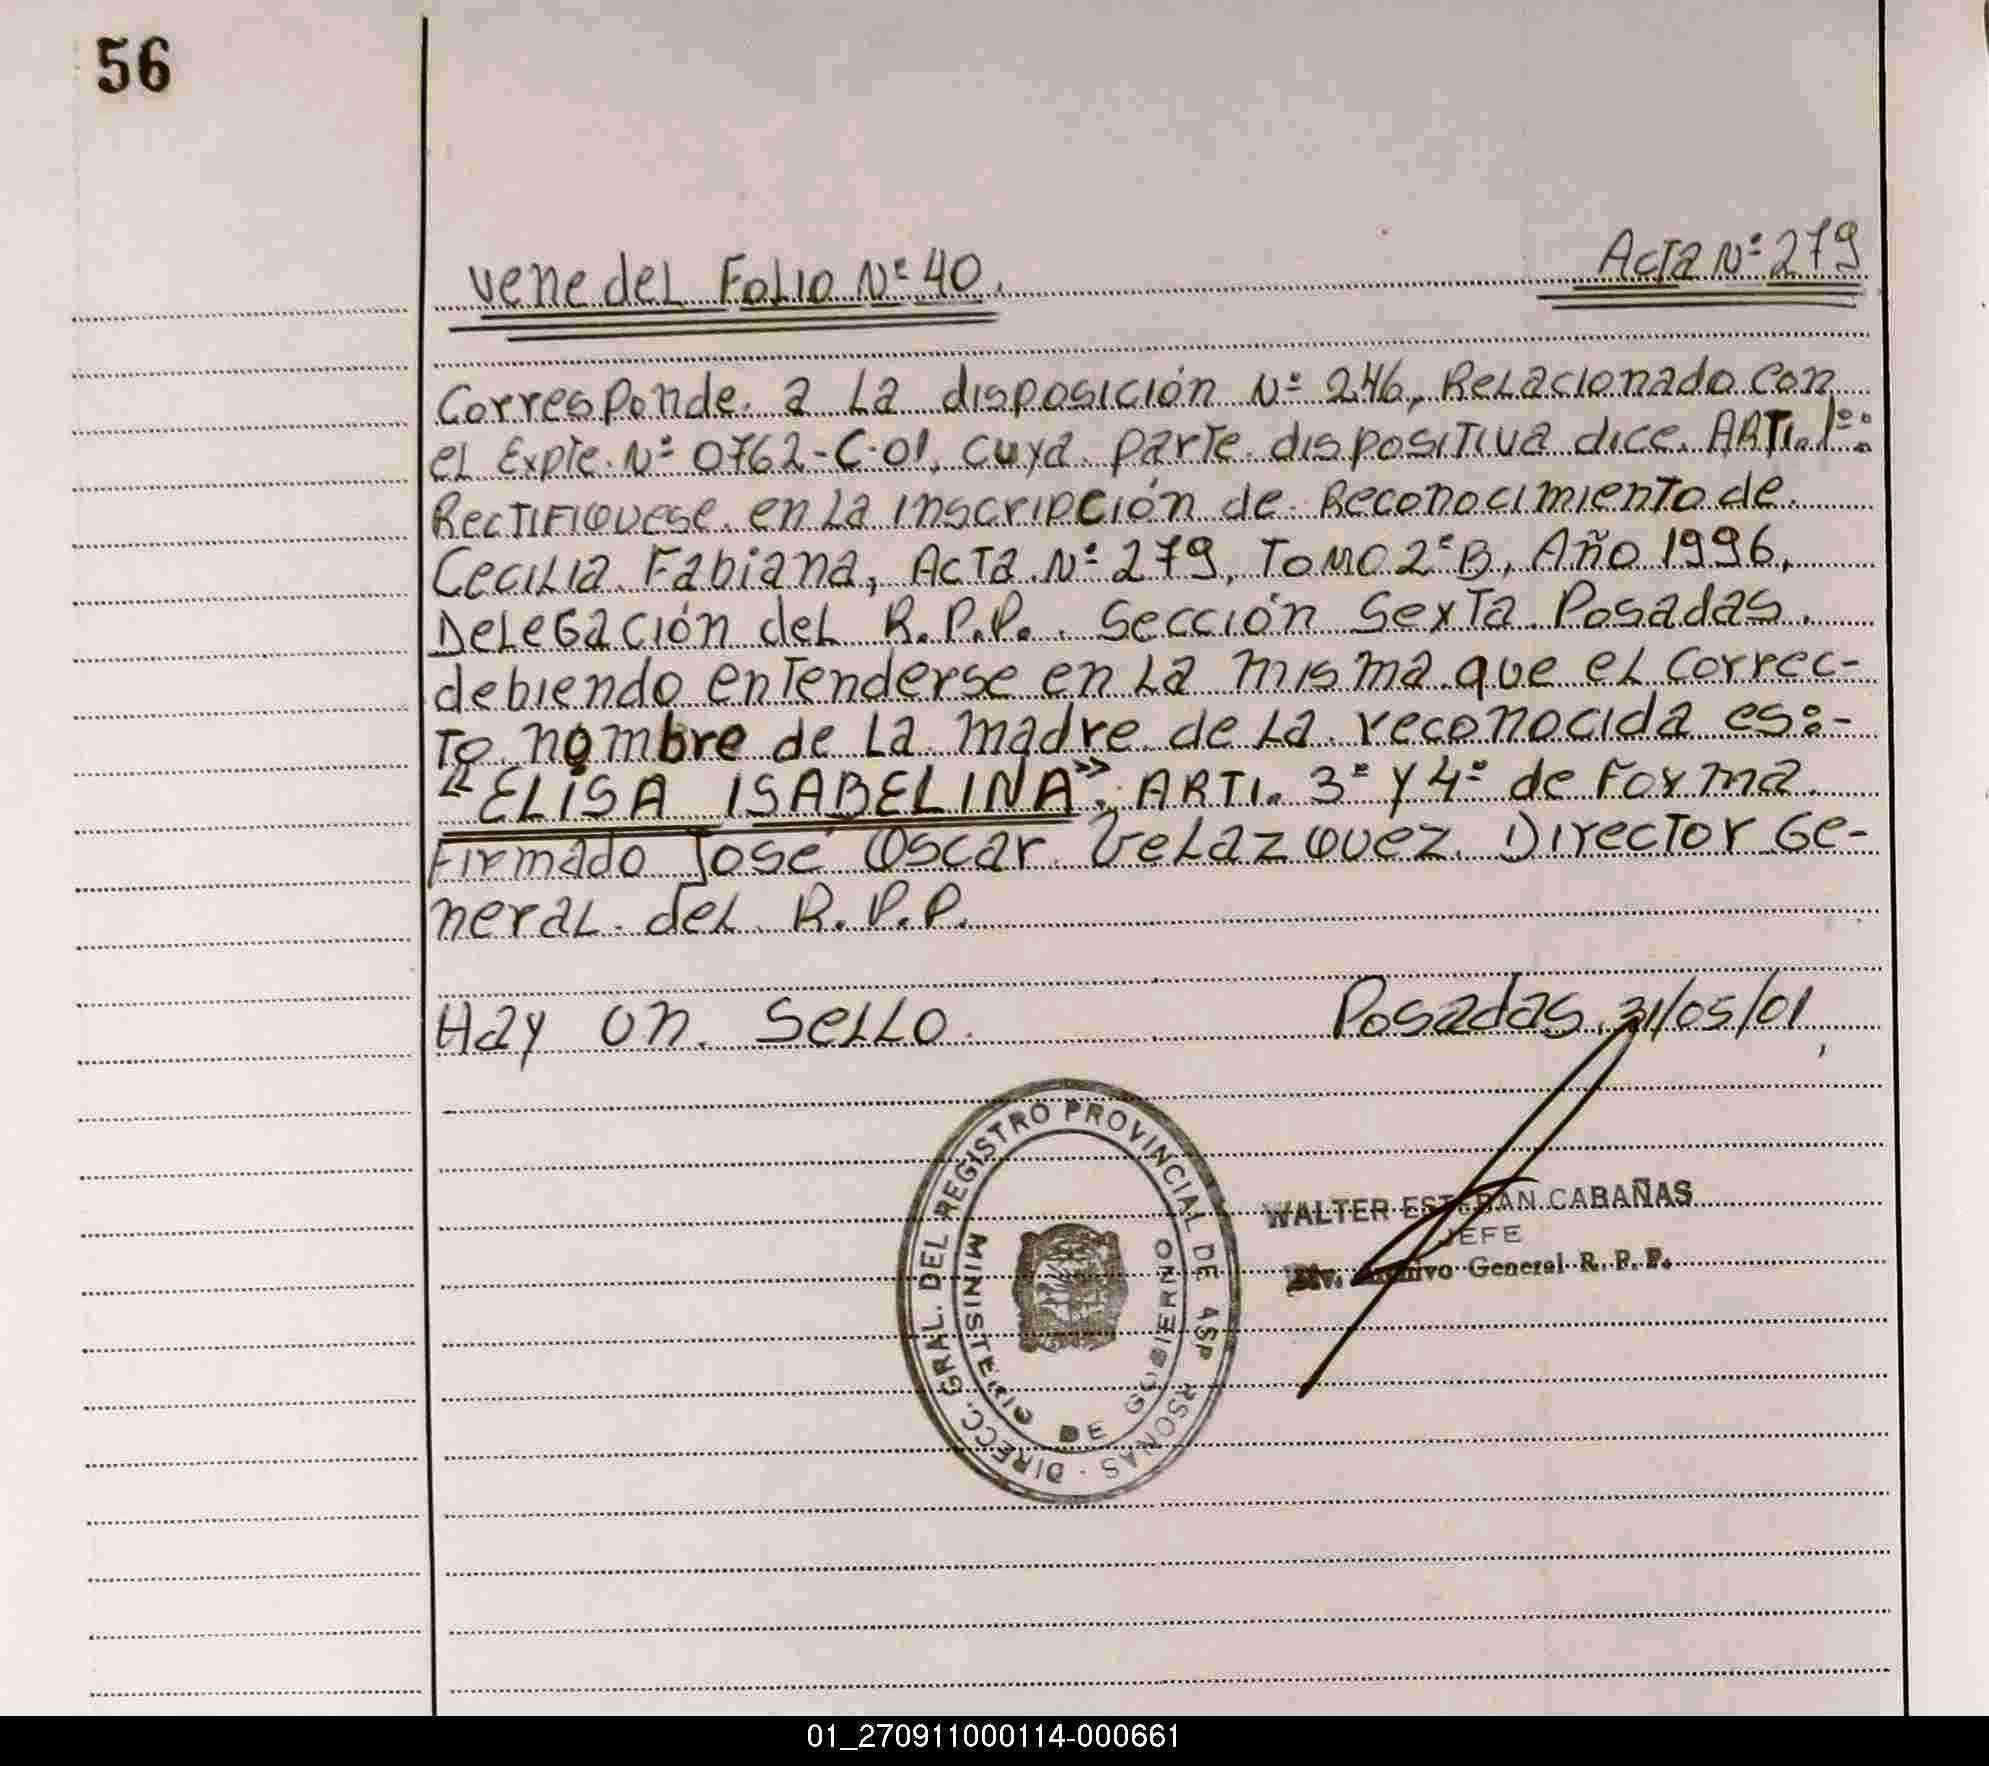 56
vene del Folio Nº 40.
Acta Nº 279
Corresponde a la disposición Nº 246, Relacionado con
el Expte. Nº 0762-C-01, cuya parte dispositiva dice. ARTI. 1º:
Rectifiquese en la inscripción de Reconocimiento de
Cecilia Fabiana, Acta Nº 279, Tomo 2º B, Año 1996,
Delegación del R.P.P. Sección Sexta Posadas.
debiendo entenderse en la misma que el correc-
to nombre de la madre de la reconocida es:-
"ELISA ISABELINA". ARTI. 3º y 4º de forma.
Firmado José Oscar Velazquez. Director Ge-
neral del R.P.P.
Hay un Sello.
Posadas, 31/05/01,
DIRECC. GRAL. DEL REGISTRO PROVINCIAL DE ASP RSONAS
MINISTERIO DE GOBIERNO
WALTER ESTEBAN CABAÑAS
JEFE
Div. Archivo General R. P. P.
01_270911000114-000661